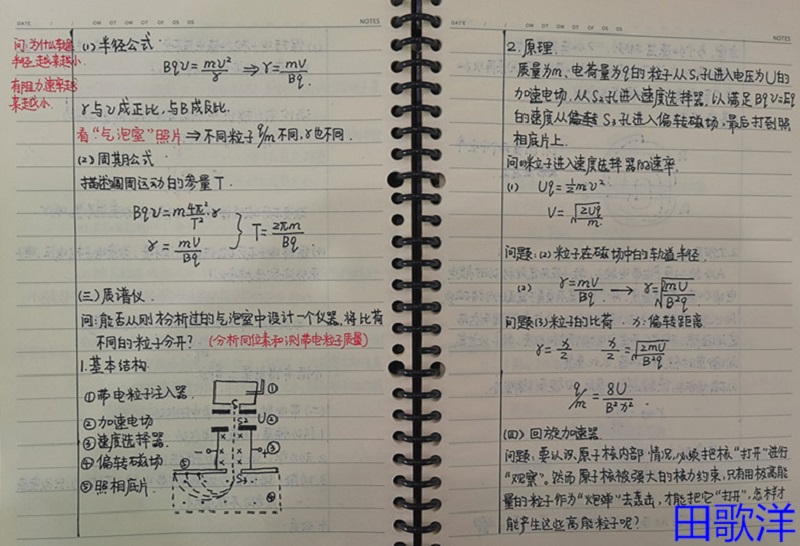 DATE / / MO TU WE TH FR SA SU NOTES
问:为什么轨迹
半径越来越小.
有阻力速率越
来越小.
(1) 半径公式
Bqv = mv²/r ⇒ r = mv/Bq.
r与v成正比,与B成反比.
看“气泡室”照片 ⇒ 不同粒子 q/m 不同, r也不同.
(2) 周期公式.
描述圆周运动的参量T.
Bqv = m 4π²/T² · r
r = mv/Bq
T = 2πm/Bq.
(三) 质谱仪.
问:能否从刚才分析过的气泡室中设计一个仪器,将比荷
不同的粒子分开? (分析同位素和测带电粒子质量)
1. 基本结构.
①带电粒子注入器.
②加速电场
③速度选择器.
④偏转磁场
⑤照相底片.
①
S₁
S₂ U ②
- + ③
S₃
⑤
④
DATE / / NOTES
2. 原理.
质量为m、电荷量为q的粒子从S₁孔进入电压为U的
加速电场,从S₂孔进入速度选择器,以满足Bqv=Eq
的速度从S₃孔进入偏转磁场,最后打到照
相底片上.
问(1)粒子进入速度选择器的速率.
(1) Uq = ½mv²
v = √(2Uq/m).
问题:(2) 粒子在磁场中的轨道半径.
(2) r = mv/Bq → r = √(2mU/B²q)
问题(3)粒子的比荷. x:偏转距离
r = x/2 x/2 = √(2mU/B²q)
q/m = 8U/B²x².
(四) 回旋加速器.
问题:要认识原子核内部情况,必须把核“打开”进行
“观察”. 然而原子核被强大的核力约束,只有用极高能
量的粒子作为“炮弹”去轰击,才能把它“打开”,怎样才
能产生这些高能粒子呢?
田歌洋